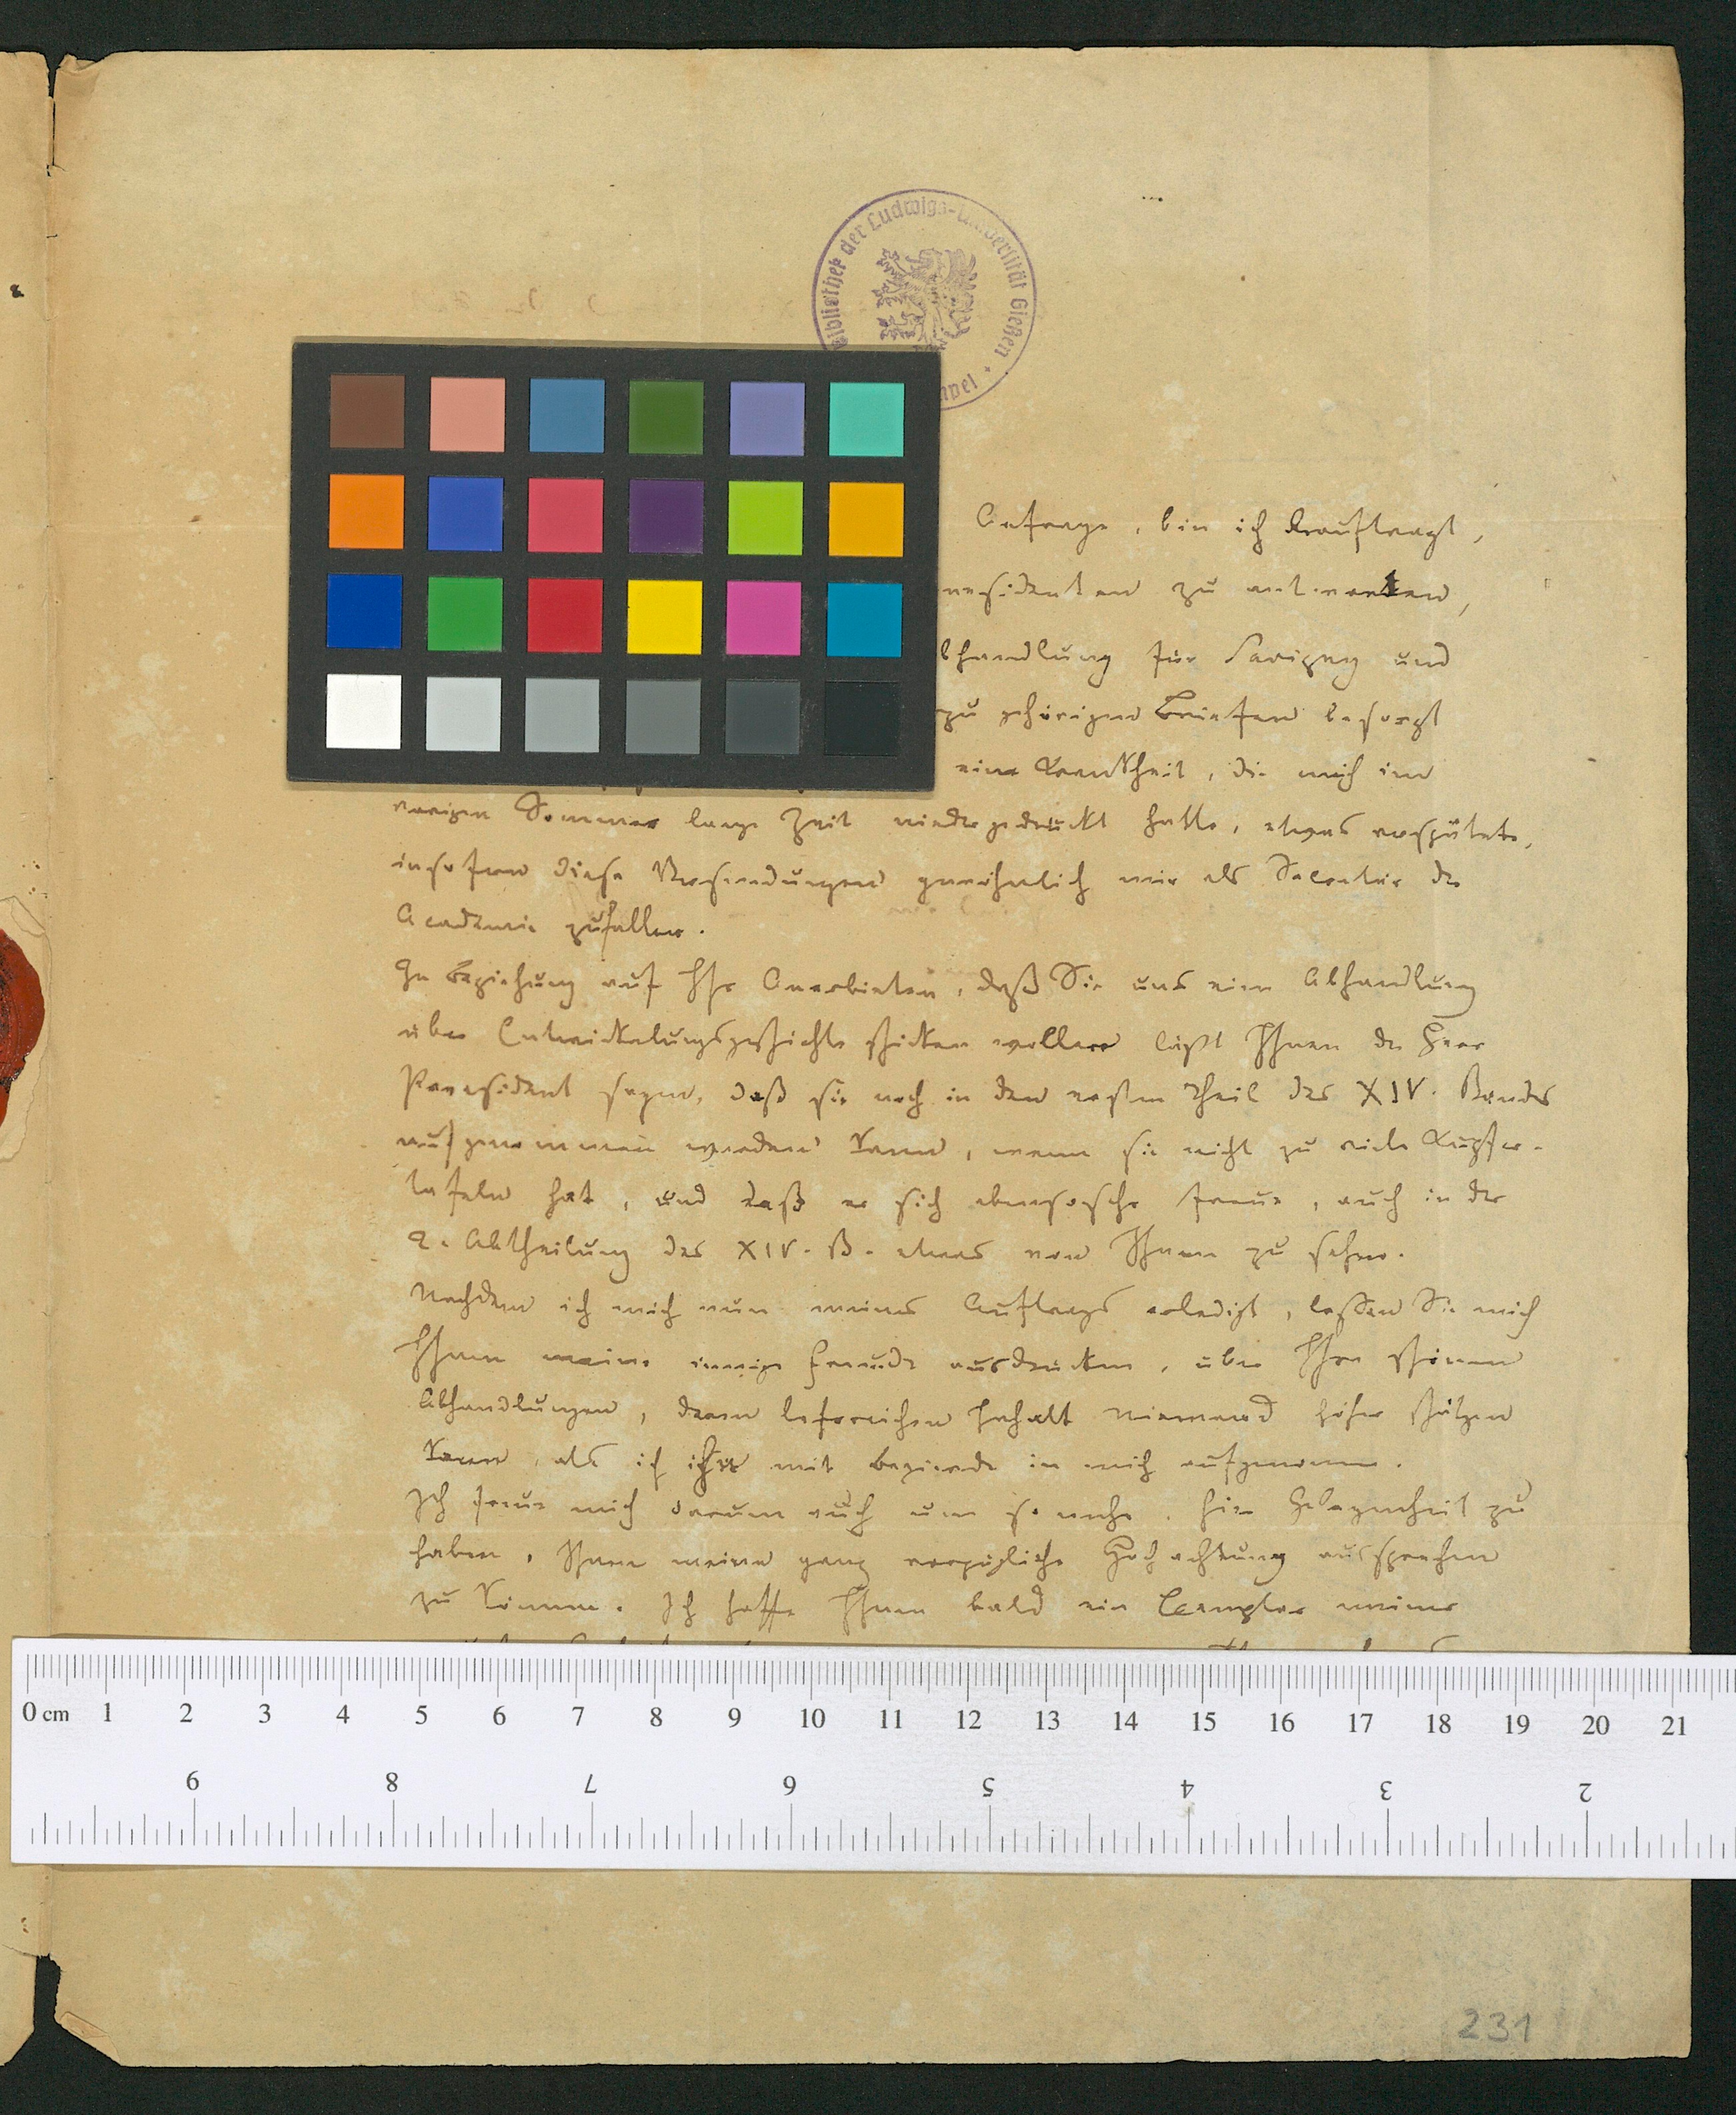 Bibliothek der Ludwigs-Universität Gießen
Anfrage, bin ich beauftragt,
raesidenten zu antworten,
bhandlung für Savigny und
zu gehörigen Briefen besorgt
eine Krankheit, die mich im
vorigen Sommer lange Zeit niedergedrückt hatte, etwas verspätete,
insofern diese Versendungen gewöhnlich mir als Secretär der
Academie zufallen.
In Beziehung auf Ihr Anerbieten, daß Sie uns eine Abhandlung
über Entwickelungsgeschichte schicken wollen läßt Ihnen der Herr
Praesident sagen, daß sie noch in den ersten Theil des XIV. Bandes
aufgenommen werden kann, wenn sie nicht zu viele Kupfer-
tafeln hat, und daß er sich ebensosehr freue, auch in der
2. Abtheilung des XIV. B. etwas von Ihnen zu sehen.
Nachdem ich mich nun meines Auftrags erledigt, lassen Sie mich
Ihnen meine innige Freude ausdrucken, über Ihre schönen
Abhandlungen, deren lehrreichen Inhalt niemand höher schätzen
kann, als ich ihn mit Begierde in mich aufgenommen.
Ich freue mich darum auch um so mehr, hier Gelegenheit zu
haben, Ihnen meine ganz vorzügliche Hochachtung aussprechen
zu können. Ich hoffe Ihnen bald ein Exemplar meiner
0 cm 1 2 3 4 5 6 7 8 9 10 11 12 13 14 15 16 17 18 19 20 21
9 8 7 6 5 4 3 2
231